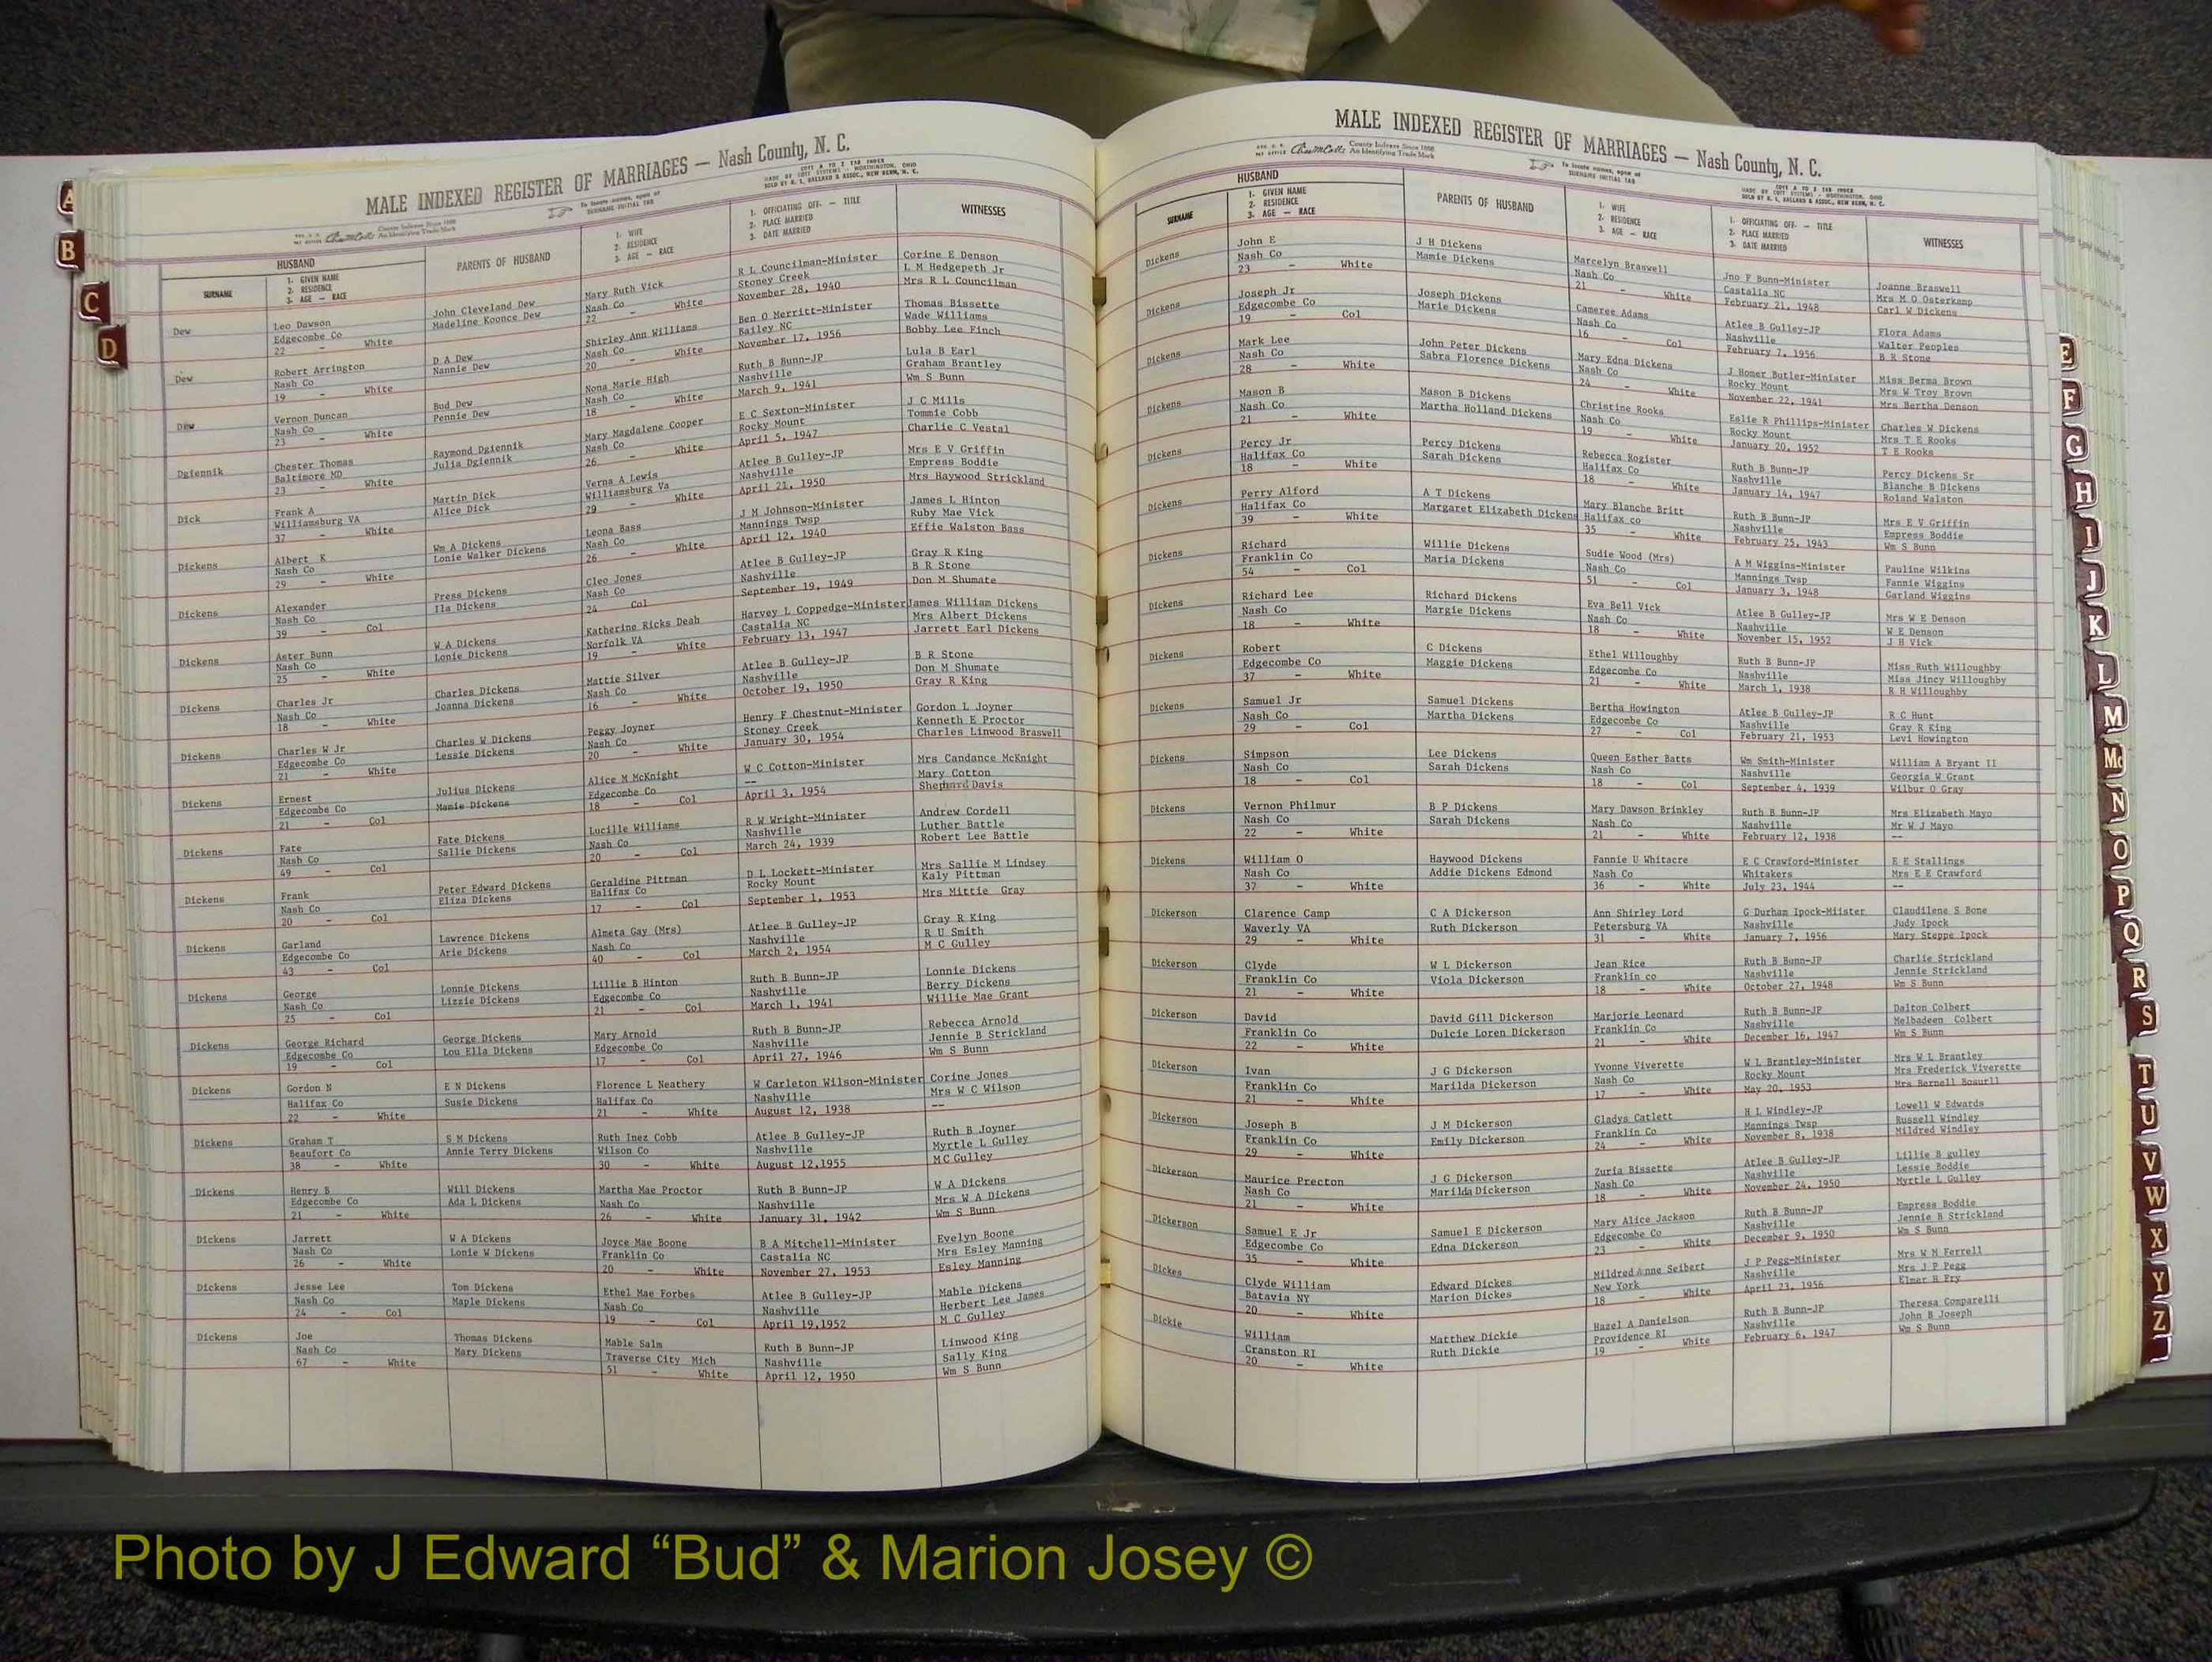 MALE INDEXED REGISTER OF MARRIAGES — Nash County, N. C.
County Indexes Since 1888
An Identifying Trade Mark
To locate names, open at
SURNAME INITIAL TAB
COTT A TO Z TAB INDEX
MADE BY COTT SYSTEMS - WORTHINGTON, OHIO
SOLD BY R. L. BALLARD & ASSOC., NEW BERN, N. C.
HUSBAND
SURNAME
1. GIVEN NAME
2. RESIDENCE
3. AGE — RACE
PARENTS OF HUSBAND
1. WIFE
2. RESIDENCE
3. AGE — RACE
1. OFFICIATING OFF. - TITLE
2. PLACE MARRIED
3. DATE MARRIED
WITNESSES
Dew Leo Dawson John Cleveland Dew Mary Ruth Vick R L Councilman-Minister Corine E Denson
Edgecombe Co Madeline Koonce Dew Nash Co Stoney Creek L M Hedgepeth Jr
22 - White 22 - White November 28, 1940 Mrs R L Councilman
Dew Robert Arrington D A Dew Shirley Ann Williams Ben O Merritt-Minister Thomas Bissette
Nash Co Nannie Dew Nash Co Bailey NC Wade Williams
19 - White 20 - White November 17, 1956 Bobby Lee Finch
Dew Vernon Duncan Bud Dew Nona Marie High Ruth B Bunn-JP Lula B Earl
Nash Co Pennie Dew Nash Co Nashville Graham Brantley
23 - White 18 - White March 9, 1941 Wm S Bunn
Dgiennik Chester Thomas Raymond Dgiennik Mary Magdalene Cooper E C Sexton-Minister J C Mills
Baltimore MD Julia Dgiennik Nash Co Rocky Mount Tommie Cobb
23 - White 26 - White April 5, 1947 Charlie C Vestal
Dick Frank A Martin Dick Verna A Lewis Atlee B Gulley-JP Mrs E V Griffin
Williamsburg VA Alice Dick Williamsburg Va Nashville Empress Boddie
37 - White 29 - White April 21, 1950 Mrs Haywood Strickland
Dickens Albert K Wm A Dickens Leona Bass J M Johnson-Minister James L Hinton
Nash Co Lonie Walker Dickens Nash Co Mannings Twsp Ruby Mae Vick
29 - White 26 - White April 12, 1940 Effie Walston Bass
Dickens Alexander Press Dickens Cleo Jones Atlee B Gulley-JP Gray R King
Nash Co Ila Dickens Nash Co Nashville B R Stone
39 - Col 24 Col September 19, 1949 Don M Shumate
Dickens Aster Bunn W A Dickens Katherine Ricks Deah Harvey L Coppedge-Minister James William Dickens
Nash Co Lonie Dickens Norfolk VA Castalia NC Mrs Albert Dickens
25 - White 19 - White February 13, 1947 Jarrett Earl Dickens
Dickens Charles Jr Charles Dickens Mattie Silver Atlee B Gulley-JP B R Stone
Nash Co Joanna Dickens Nash Co Nashville Don M Shumate
18 - White 16 - White October 19, 1950 Gray R King
Dickens Charles W Jr Charles W Dickens Peggy Joyner Henry F Chestnut-Minister Gordon L Joyner
Edgecombe Co Lessie Dickens Nash Co Stoney Creek Kenneth E Proctor
21 - White 20 - White January 30, 1954 Charles Linwood Braswell
Dickens Ernest Julius Dickens Alice M McKnight W C Cotton-Minister Mrs Candance McKnight
Edgecombe Co Mamie Dickens Edgecombe Co -- Mary Cotton
21 - Col 18 - Col April 3, 1954 Shephard Davis
Dickens Fate Fate Dickens Lucille Williams R W Wright-Minister Andrew Cordell
Nash Co Sallie Dickens Nash Co Nashville Luther Battle
49 - Col 20 - Col March 24, 1939 Robert Lee Battle
Dickens Frank Peter Edward Dickens Geraldine Pittman D L Lockett-Minister Mrs Sallie M Lindsey
Nash Co Eliza Dickens Halifax Co Rocky Mount Kaly Pittman
20 - Col 17 - Col September 1, 1953 Mrs Mittie Gray
Dickens Garland Lawrence Dickens Almeta Gay (Mrs) Atlee B Gulley-JP Gray R King
Edgecombe Co Arie Dickens Nash Co Nashville R U Smith
43 - Col 40 - Col March 2, 1954 M C Gulley
Dickens George Lonnie Dickens Lillie B Hinton Ruth B Bunn-JP Lonnie Dickens
Nash Co Lizzie Dickens Edgecombe Co Nashville Berry Dickens
25 - Col 21 - Col March 1, 1941 Willie Mae Grant
Dickens George Richard George Dickens Mary Arnold Ruth B Bunn-JP Rebecca Arnold
Edgecombe Co Lou Ella Dickens Edgecombe Co Nashville Jennie B Strickland
19 - Col 17 - Col April 27, 1946 Wm S Bunn
Dickens Gordon N E N Dickens Florence L Neathery W Carleton Wilson-Minister Corine Jones
Halifax Co Susie Dickens Halifax Co Nashville Mrs W C Wilson
22 - White 21 - White August 12, 1938 --
Dickens Graham T S M Dickens Ruth Inez Cobb Atlee B Gulley-JP Ruth B Joyner
Beaufort Co Annie Terry Dickens Wilson Co Nashville Myrtle L Gulley
38 - White 30 - White August 12,1955 M C Gulley
Dickens Henry B Will Dickens Martha Mae Proctor Ruth B Bunn-JP W A Dickens
Edgecombe Co Ada L Dickens Nash Co Nashville Mrs W A Dickens
21 - White 26 - White January 31, 1942 Wm S Bunn
Dickens Jarrett W A Dickens Joyce Mae Boone B A Mitchell-Minister Evelyn Boone
Nash Co Lonie W Dickens Franklin Co Castalia NC Mrs Esley Manning
26 - White 20 - White November 27, 1953 Esley Manning
Dickens Jesse Lee Tom Dickens Ethel Mae Forbes Atlee B Gulley-JP Mable Dickens
Nash Co Maple Dickens Nash Co Nashville Herbert Lee James
24 - Col 19 - Col April 19,1952 M C Gulley
Dickens Joe Thomas Dickens Mable Salm Ruth B Bunn-JP Linwood King
Nash Co Mary Dickens Traverse City Mich Nashville Sally King
67 - White 51 - White April 12, 1950 Wm S Bunn
MALE INDEXED REGISTER OF MARRIAGES — Nash County, N. C.
County Indexes Since 1888
An Identifying Trade Mark
To locate names, open at
SURNAME INITIAL TAB
COTT A TO Z TAB INDEX
MADE BY COTT SYSTEMS - WORTHINGTON, OHIO
SOLD BY R. L. BALLARD & ASSOC., NEW BERN, N. C.
HUSBAND
SURNAME
1. GIVEN NAME
2. RESIDENCE
3. AGE — RACE
PARENTS OF HUSBAND
1. WIFE
2. RESIDENCE
3. AGE — RACE
1. OFFICIATING OFF. - TITLE
2. PLACE MARRIED
3. DATE MARRIED
WITNESSES
Dickens John E J H Dickens Marcelyn Braswell Jno F Bunn-Minister Joanne Braswell
Nash Co Mamie Dickens Nash Co Castalia NC Mrs M O Osterkamp
23 - White 21 - White February 21, 1948 Carl W Dickens
Dickens Joseph Jr Joseph Dickens Cameree Adams Atlee B Gulley-JP Flora Adams
Edgecombe Co Marie Dickens Nash Co Nashville Walter Peoples
19 - Col 16 - Col February 7, 1956 B R Stone
Dickens Mark Lee John Peter Dickens Mary Edna Dickens J Homer Butler-Minister Miss Berma Brown
Nash Co Sabra Florence Dickens Nash Co Rocky Mount Mrs W Troy Brown
28 - White 24 - White November 22, 1941 Mrs Bertha Denson
Dickens Mason B Mason B Dickens Christine Rooks Eslie R Phillips-Minister Charles W Dickens
Nash Co Martha Holland Dickens Nash Co Rocky Mount Mrs T E Rooks
21 - White 19 - White January 20, 1952 T E Rooks
Dickens Percy Jr Percy Dickens Rebecca Rogister Ruth B Bunn-JP Percy Dickens Sr
Halifax Co Sarah Dickens Halifax Co Nashville Blanche B Dickens
18 - White 18 - White January 14, 1947 Roland Walston
Dickens Perry Alford A T Dickens Mary Blanche Britt Ruth B Bunn-JP Mrs E V Griffin
Halifax Co Margaret Elizabeth Dickens Halifax co Nashville Empress Boddie
39 - White 35 - White February 25, 1943 Wm S Bunn
Dickens Richard Willie Dickens Sudie Wood (Mrs) A M Wiggins-Minister Pauline Wilkins
Franklin Co Maria Dickens Nash Co Mannings Twsp Fannie Wiggins
54 - Col 51 - Col January 3, 1948 Garland Wiggins
Dickens Richard Lee Richard Dickens Eva Bell Vick Atlee B Gulley-JP Mrs W E Denson
Nash Co Margie Dickens Nash Co Nashville W E Denson
18 - White 18 - White November 15, 1952 J H Vick
Dickens Robert C Dickens Ethel Willoughby Ruth B Bunn-JP Miss Ruth Willoughby
Edgecombe Co Maggie Dickens Edgecombe Co Nashville Miss Jincy Willoughby
37 - White 21 - White March 1, 1938 R H Willoughby
Dickens Samuel Jr Samuel Dickens Bertha Howington Atlee B Gulley-JP R C Hunt
Nash Co Martha Dickens Edgecombe Co Nashville Gray R King
29 - Col 27 - Col February 21, 1953 Levi Howington
Dickens Simpson Lee Dickens Queen Esther Batts Wm Smith-Minister William A Bryant II
Nash Co Sarah Dickens Nash Co Nashville Georgia W Grant
18 - Col 18 - Col September 4, 1939 Wilbur O Gray
Dickens Vernon Philmur B P Dickens Mary Dawson Brinkley Ruth B Bunn-JP Mrs Elizabeth Mayo
Nash Co Sarah Dickens Nash Co Nashville Mr W J Mayo
22 - White 21 - White February 12, 1938 --
Dickens William O Haywood Dickens Fannie U Whitacre E C Crawford-Minister E E Stallings
Nash Co Addie Dickens Edmond Nash Co Whitakers Mrs E E Crawford
37 - White 36 - White July 23, 1944 --
Dickerson Clarence Camp C A Dickerson Ann Shirley Lord G Durham Ipock-Miister Claudilene S Bone
Waverly VA Ruth Dickerson Petersburg VA Nashville Judy Ipock
29 - White 31 - White January 7, 1956 Mary Steppe Ipock
Dickerson Clyde W L Dickerson Jean Rice Ruth B Bunn-JP Charlie Strickland
Franklin Co Viola Dickerson Franklin co Nashville Jennie Strickland
21 - White 18 - White October 27, 1948 Wm S Bunn
Dickerson David David Gill Dickerson Marjorie Leonard Ruth B Bunn-JP Dalton Colbert
Franklin Co Dulcie Loren Dickerson Franklin Co Nashville Melbadeen Colbert
22 - White 21 - White December 16, 1947 Wm S Bunn
Dickerson Ivan J G Dickerson Yvonne Viverette W L Brantley-Minister Mrs W L Brantley
Franklin Co Marilda Dickerson Nash Co Rocky Mount Mrs Frederick Viverette
21 - White 17 - White May 20, 1953 Mrs Bernell Bosurll
Dickerson Joseph B J M Dickerson Gladys Catlett H L Windley-JP Lowell W Edwards
Franklin Co Emily Dickerson Franklin Co Mannings Twsp Russell Windley
29 - White 24 - White November 8, 1938 Mildred Windley
Dickerson Maurice Precton J G Dickerson Zuria Bissette Atlee B Gulley-JP Lillie B gulley
Nash Co Marilda Dickerson Nash Co Nashville Lessie Boddie
21 - White 18 - White November 24, 1950 Myrtle L Gulley
Dickerson Samuel E Jr Samuel E Dickerson Mary Alice Jackson Ruth B Bunn-JP Empress Boddie
Edgecombe Co Edna Dickerson Edgecombe Co Nashville Jennie B Strickland
35 - White 23 - White December 9, 1950 Wm S Bunn
Dickes Clyde William Edward Dickes Mildred Anne Seibert J P Pegg-Minister Mrs W M Ferrell
Batavia NY Marion Dickes New York Nashville Mrs J P Pegg
20 - White 18 - White April 23, 1956 Elmer H Fry
Dickie William Matthew Dickie Hazel A Danielson Ruth B Bunn-JP Theresa Comparelli
Cranston RI Ruth Dickie Providence RI Nashville John B Joseph
20 - White 19 - White February 6, 1947 Wm S Bunn
A
B
C
D
E
F
G
H
I
J
K
L
M
Mc
N
O
P
Q
R
S
T
U
V
W
X
Y
Z
Photo by J Edward “Bud” & Marion Josey ©